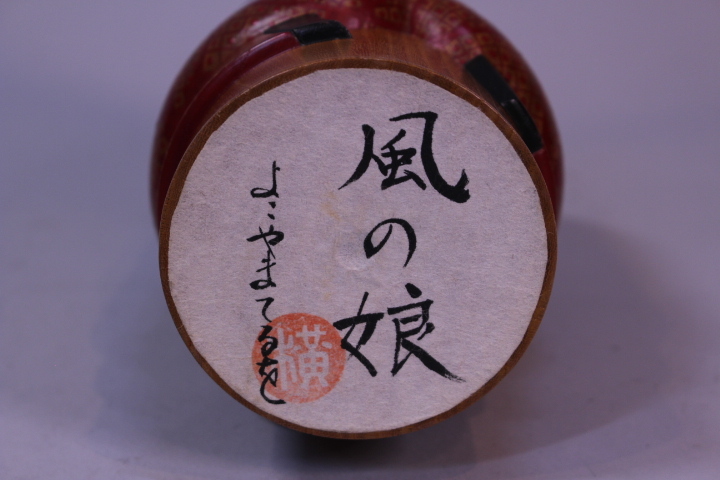 風の娘
よこやまてるを
横